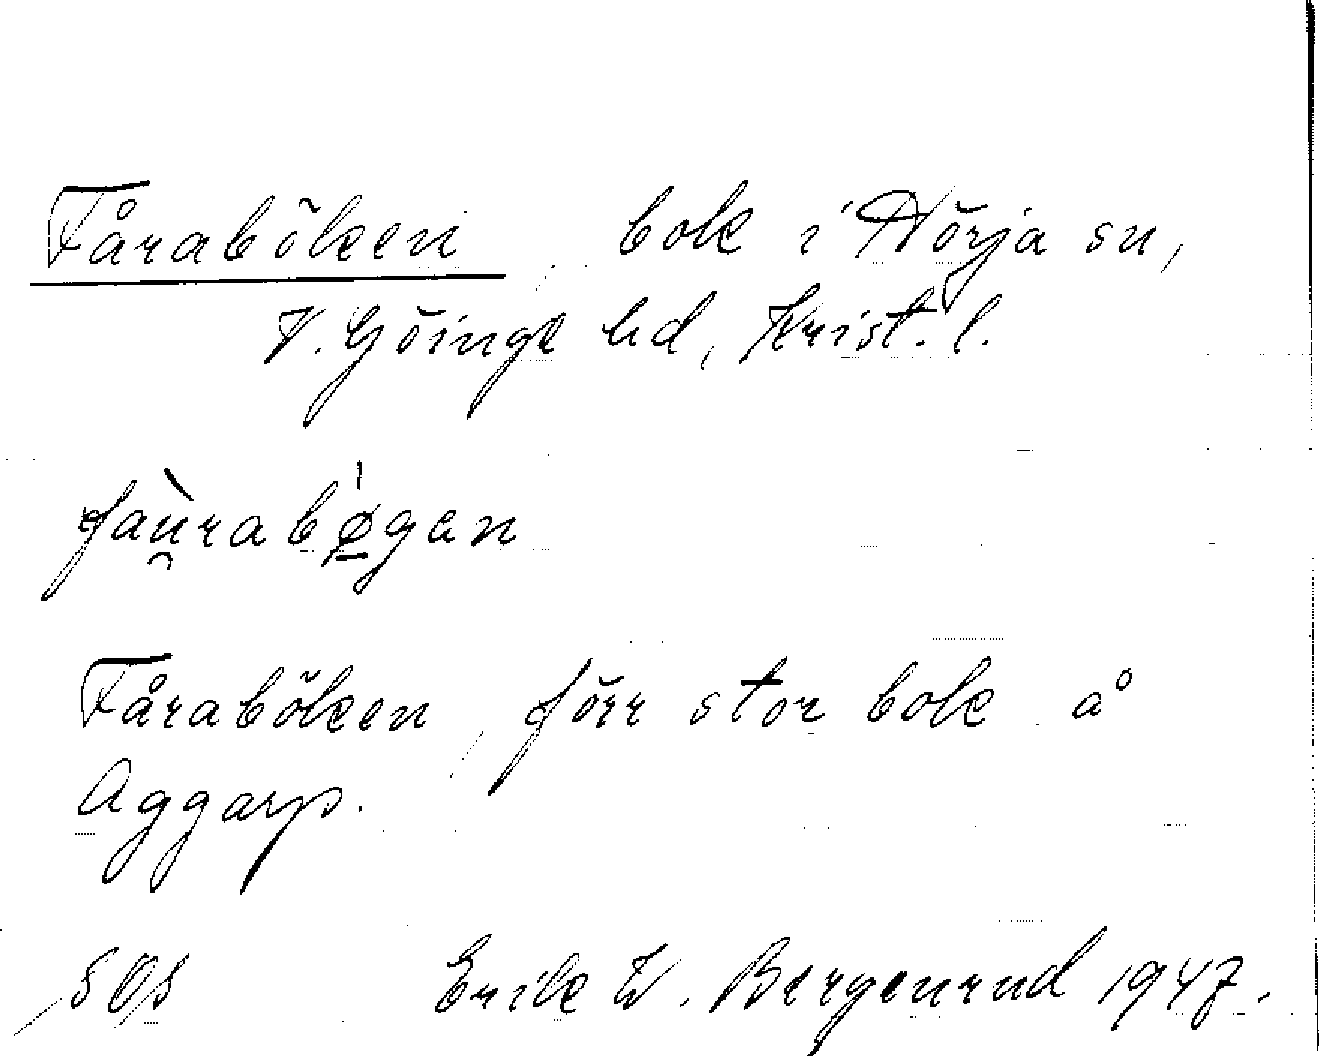 Fåraböken, bok i Nörja sn,
V. Göinge hd, Krist. l.
faù̯rabǿ̠gan
Fåraböken, förr stor bok å
Aggarp.
Erik W. Bergenrud 1947.